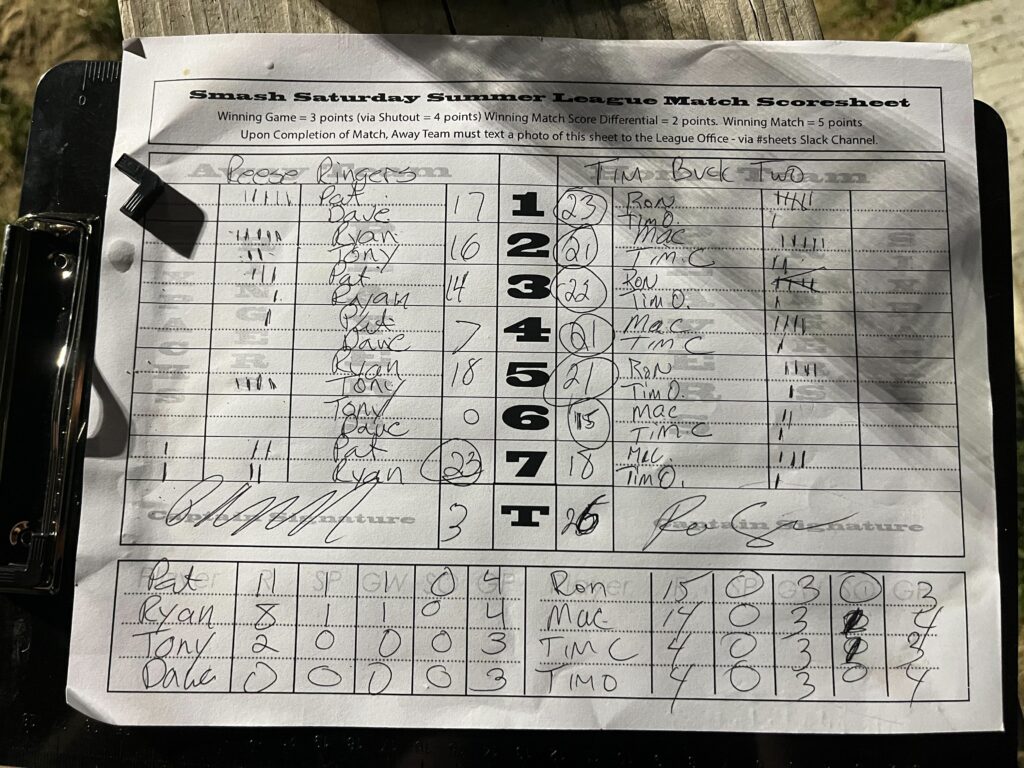 Smash Saturday Summer League Match Scoresheet
Winning Game = 3 points (via Shutout = 4 points) Winning Match Score Differential = 2 points. Winning Match = 5 points
Upon Completion of Match, Away Team must text a photo of this sheet to the League Office - via #sheets Slack Channel.
Reese Ringers Tim Buck Two
Pat 17 1 23 Ron
Dave Tim O.
Ryan 16 2 21 Mac
Tony Tim C
Pat 14 3 22 Ron
Ryan Tim O.
Pat 7 4 21 Mac
Dave Tim C
Ryan 18 5 21 Ron
Tony Tim O.
Tony 0 6 15 Mac
Dave Tim C
Pat 23 7 18 Mac
Ryan Tim O.
Captain Signature 3 T 26 Captain Signature
Pat 11 1 1 0 4 Ron 15 0 3 0 3
Ryan 8 1 1 0 4 Mac 14 0 3 4
Tony 2 0 0 0 3 Tim C 4 0 3 3
Dave 0 0 0 0 3 Tim O 4 0 3 0 4